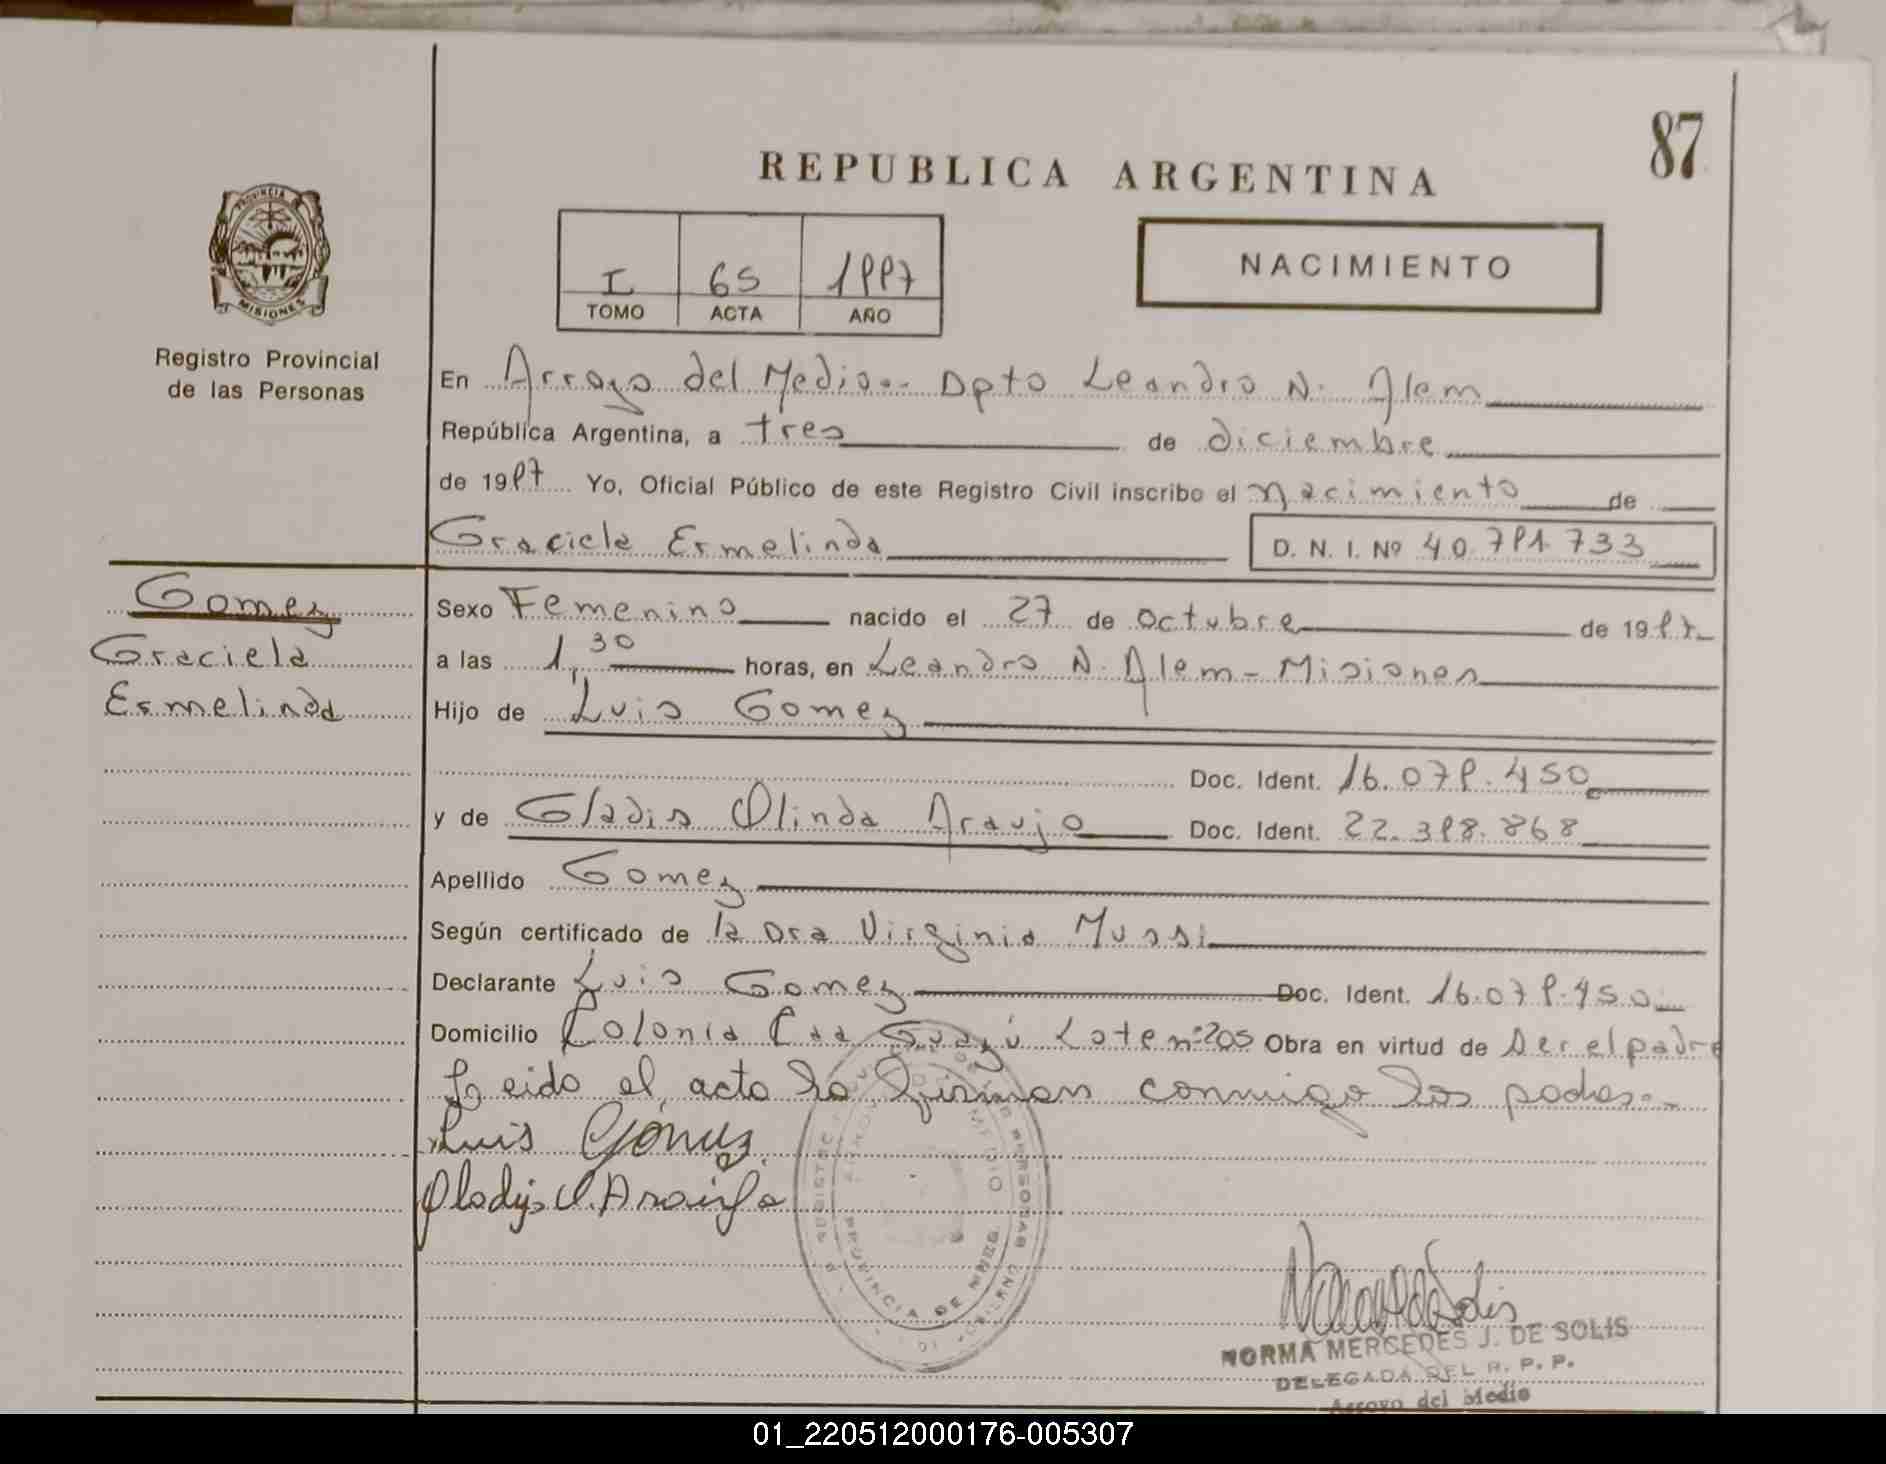 87
REPUBLICA ARGENTINA
PROVINCIA
MISIONES
Registro Provincial
de las Personas
I 65 1997
TOMO ACTA AÑO
NACIMIENTO
En Arroyo del Medio.- Dpto Leandro N. Alem
República Argentina, a tres de diciembre
de 1997 Yo, Oficial Público de este Registro Civil inscribo el nacimiento de
Graciela Ermelinda D. N. I. Nº 40.791.733
Gomez
Graciela
Ermelinda
Sexo Femenino nacido el 27 de octubre de 1997
a las 1,30 horas, en Leandro N. Alem - Misiones
Hijo de Luis Gomez
Doc. Ident. 16.079.450
y de Gladis Olinda Araujo Doc. Ident. 22.398.868
Apellido Gomez
Según certificado de la Dra Virginia Mussi
Declarante Luis Gomez Doc. Ident. 16.079.450
Domicilio Colonia Caa Guazú Lote nº 205 Obra en virtud de ser el padre
Leido el acta la firman conmigo los padres.-
Luis Gómez
Gladys O. Araujo
PROVINCIA DE MNES.
NORMA MERCEDES J. DE SOLIS
DELEGADA DEL R. P. P.
Arroyo del Medio
01_220512000176-005307